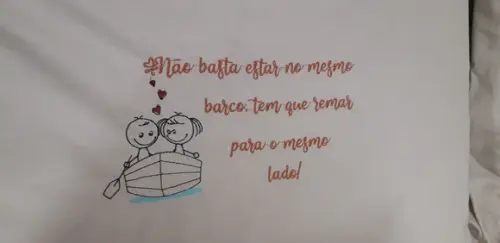 Não basta estar no mesmo
barco, tem que remar
para o mesmo
lado!